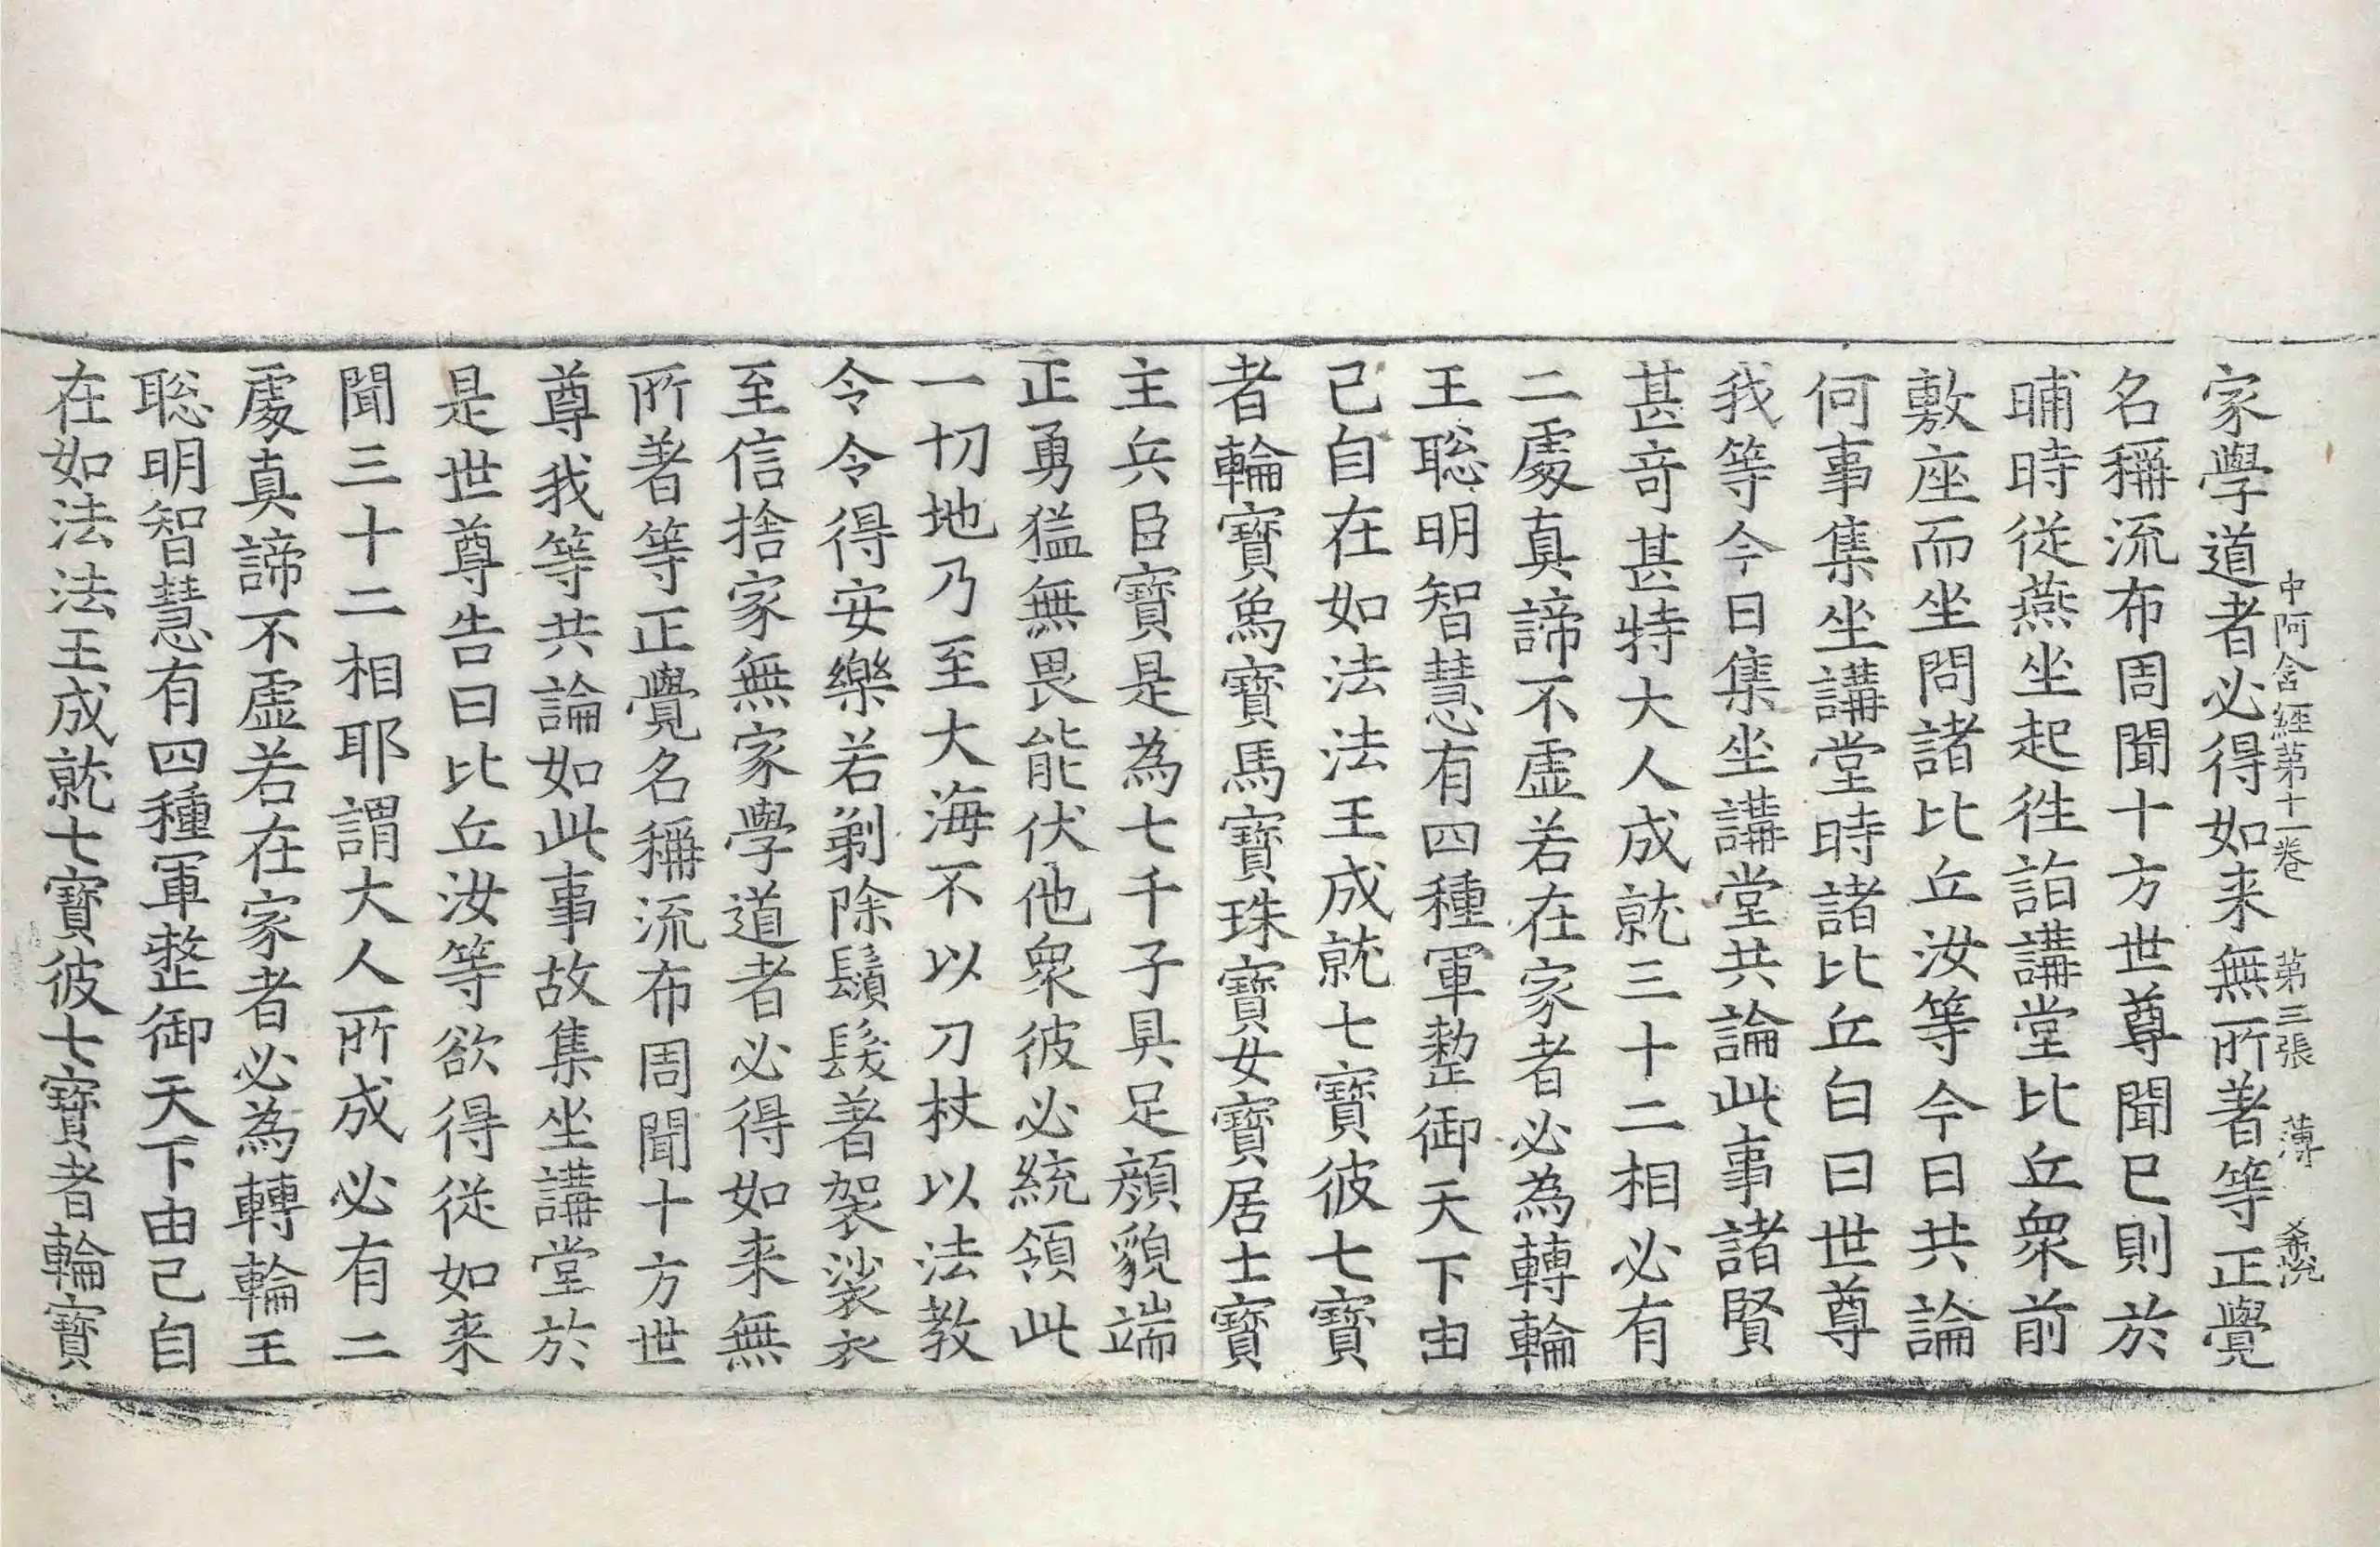 中阿含經第十一卷 第三張 薄
家學道者必得如来無所著等正覺
名稱流布周聞十方世尊聞已則於
晡時従燕坐起徃詣講堂比丘衆前
敷座而坐問諸比丘汝等今日共論
何事集坐講堂時諸比丘白曰世尊
我等今日集坐講堂共論此事諸賢
甚奇甚特大人成就三十二相必有
二處真諦不虛若在家者必為轉輪
王聡明智慧有四種軍整御天下由
己自在如法法王成就七寶彼七寶
者輪寶象寶馬寶珠寶女寶居士寶
主兵臣寶是為七千子具足顔貌端
正勇猛無畏能伏他衆彼必統領此
一切地乃至大海不以刀杖以法教
令令得安樂若剃除鬚髮著袈裟衣
至信捨家無家學道者必得如来無
所著等正覺名稱流布周聞十方世
尊我等共論如此事故集坐講堂於
是世尊告曰比丘汝等欲得従如来
聞三十二相耶謂大人所成必有二
處真諦不虛若在家者必為轉輪王
聡明智慧有四種軍整御天下由己自
在如法法王成就七寶彼七寶者輪寶